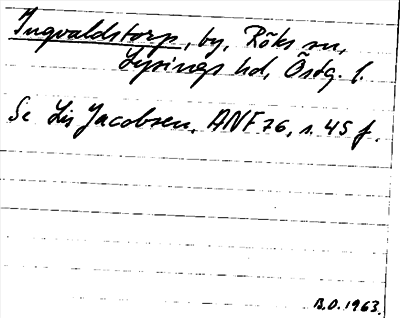 Ingvaldstorp, by, Röks sn,
Lysings hd, Östg. l.
Se Lis Jacobsen, ANF 76, s. 45 f.
B.O. 1963.